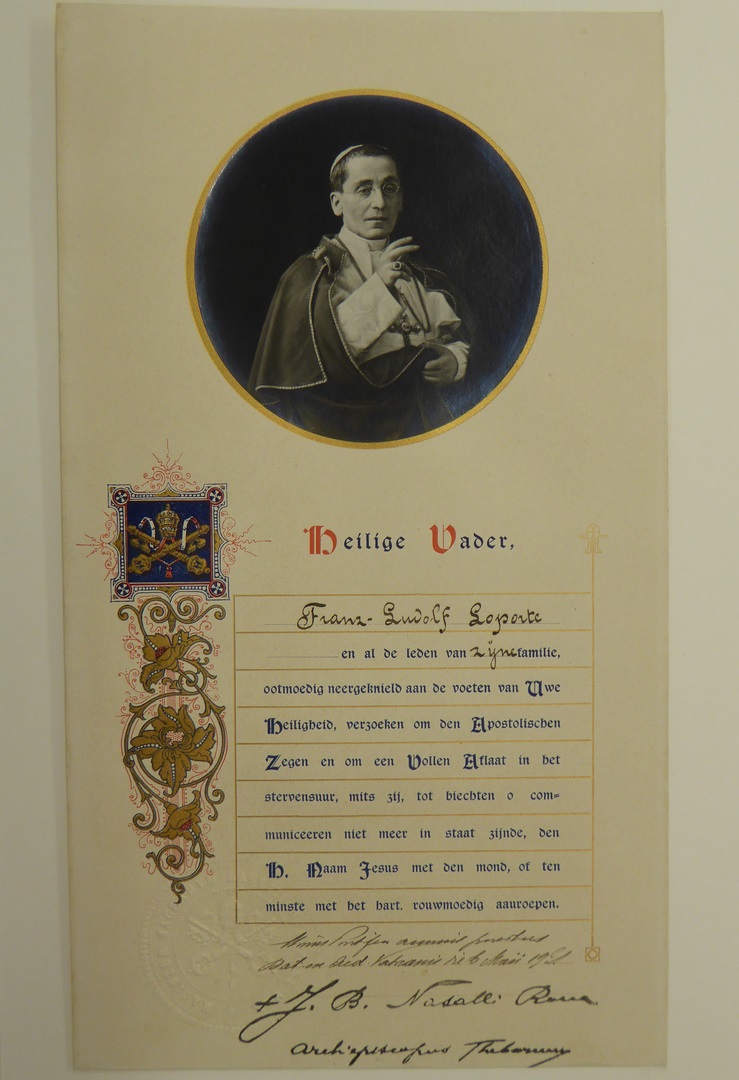 Heilige Vader,
Franz-Ludolf Loporte
en al de leden van zijne familie,
ootmoedig neergeknield aan de voeten van Uwe
Heiligheid, verzoeken om den Apostolischen
Zegen en om een Vollen Aflaat in het
stervensuur, mits zij, tot biechten o com=
municeeren niet meer in staat zijnde, den
H. Naam Jesus met den mond, of ten
minste met het hart. rouwmoedig aauroepen.
annuit
die 6 Maii 19
+ J. B. Nasalli Rocca
Archiepiscopus Thebarum